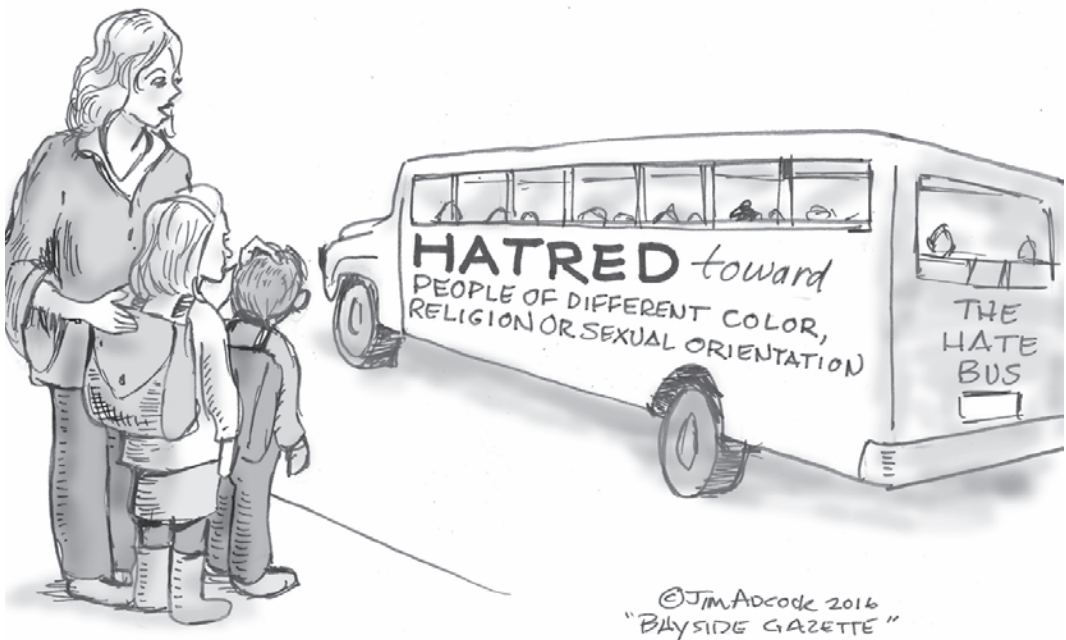 HATRED toward
PEOPLE OF DIFFERENT COLOR,
RELIGION OR SEXUAL ORIENTATION
THE
HATE
BUS
©JIM ADCOCK 2016
"BAYSIDE GAZETTE"